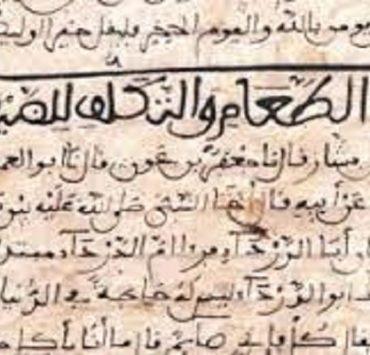 يومن بالله واليوم الاخر فليقل خيرا اوليص
الطعام والتكلف للضي
بشار قال نا جعفر بن عون قال نا ابو العم
عن ابيه قال اخى النبي صلى الله عليه
ابا الدرداء فرءا ام الدرداء متبذ
ابو الدرداء ليس له حاجة في الدنيا
كل فاني صايم قال ما انا باكل ح